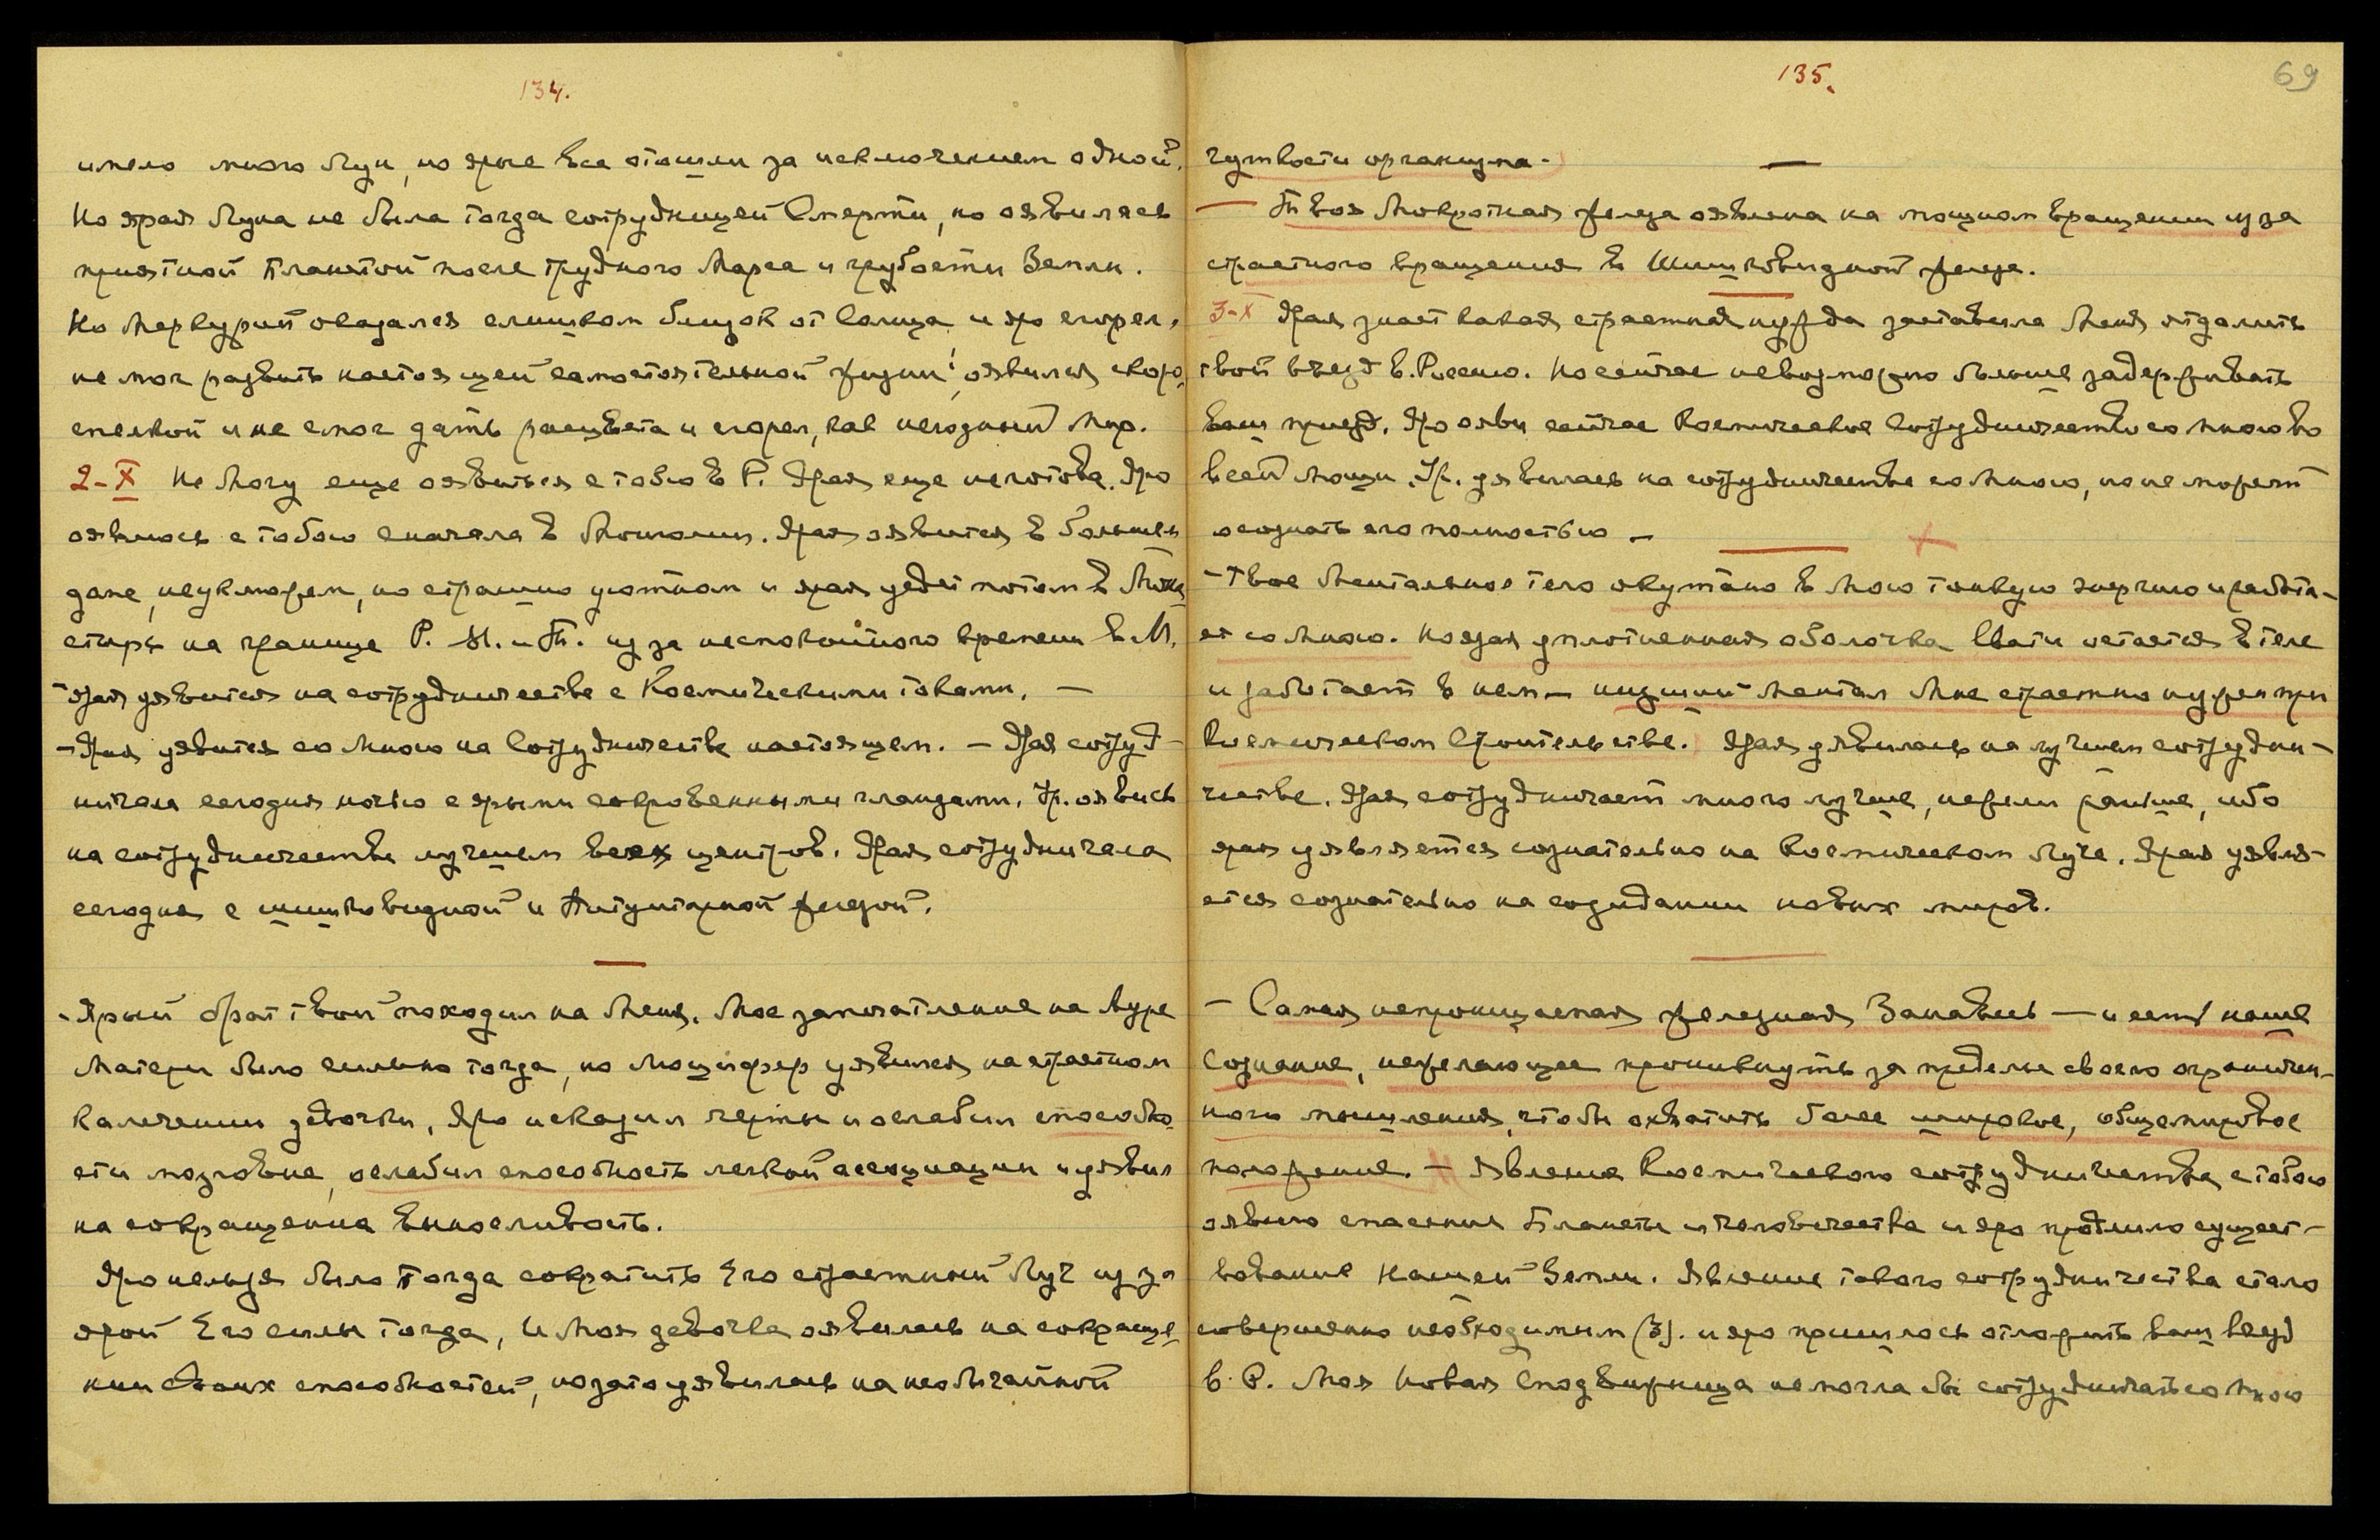 134.
имело много Лун, но ярые все отошли за исключением одной.
Но ярая Луна не была тогда сотрудницей Смерти, но явилась
приятной планетой после трудного Марса и грубости Земли.
Но Меркурий оказался слишком близок от Солнца и яро сгорел,
не мог развить настоящей самостоятельной жизни, оявился скоро
спелкой и не смог дать расцвета и сгорел, как негодный Мир.
2-X Не Могу еще оявиться с тобою в Р. Ярая еще не готова. Яро
оявлюсь с тобою сначала в Монголии. Ярая оявится в большем
доме, неуклюжем, но страшно уютном и ярая уедет потом в Мона
стырь на границе Р. М. и Т. из за неспокойного времени в М.
Ярая уявится на сотрудничестве с Космическими токами. —
— Ярая уявится со Мною на Сотрудничестве настоящем. — Ярая сотруд-
ничала сегодня ночью с ярыми сокровенными гландами. Ур. оявись
на сотрудничестве лучшем всех центров. Ярая сотрудничала
сегодня с шишковидной и Питуитарной железой.
- Ярый брат твой походил на Меня. Мое запечатление на Ауре
Матери было сильно тогда, но Люцифер уявился на страстном
калечении девочки, Яро исказил черты и ослабил способно
сти мозговые, ослабил способность легкой ассоциации и уявил
на сокращение выносливость.
Яро нельзя было тогда сократить Его страстный Луч из за
ярой Его силы тогда, И Моя девочка оявилась на сокраще
нии Своих способностей, но зато уявилась на необычайной
135.
69
чуткости организма. —
— Твоя Мокротная железа оявлена на мощном вращении из за
страстного вращения в Шишковидной железе.
3-X Ярая знает какая страстная нужда заставила Меня отдалить
твой въезд в Россию. Но сейчас невозможно больше задерживать
ваш приезд. Яро яви сейчас Космическое Сотрудничество со Мною во
всей мощи. Ур. уявилась на сотрудничестве со Мною, но не может
осознать его полностью —
— Твое Ментальное тело окутано в Мою тонкую энергию и работа-
ет со Мною. Но ярая уплотненная оболочка Свати остается в теле
и работает в нем — низший Ментал Мне страстно нужен при
Космическом Строительстве. Ярая уявилась на лучшем сотрудни-
честве. Ярая сотрудничает много лучше, нежели раньше, ибо
ярая уявляется сознательно на Космическом Луче. Ярая уявля-
ется сознательно на созидании новых миров.
— Самая непроницаемая железная Занавесь — и есть наше
сознание, нежелающее проникнуть за пределы своего ограничен-
ного мышления, чтобы охватить более широкое, общемировое
положение. — Явление Космического сотрудничества с тобою
оявило спасение Планеты и человечества и яро продлило сущест-
вование Нашей Земли. Явление такого сотрудничества стало
совершенно необходимым (З). и яро пришлось отложить ваш въезд
в. Р. Моя Новая Сподвижница не могла бы сотрудничать со Мною